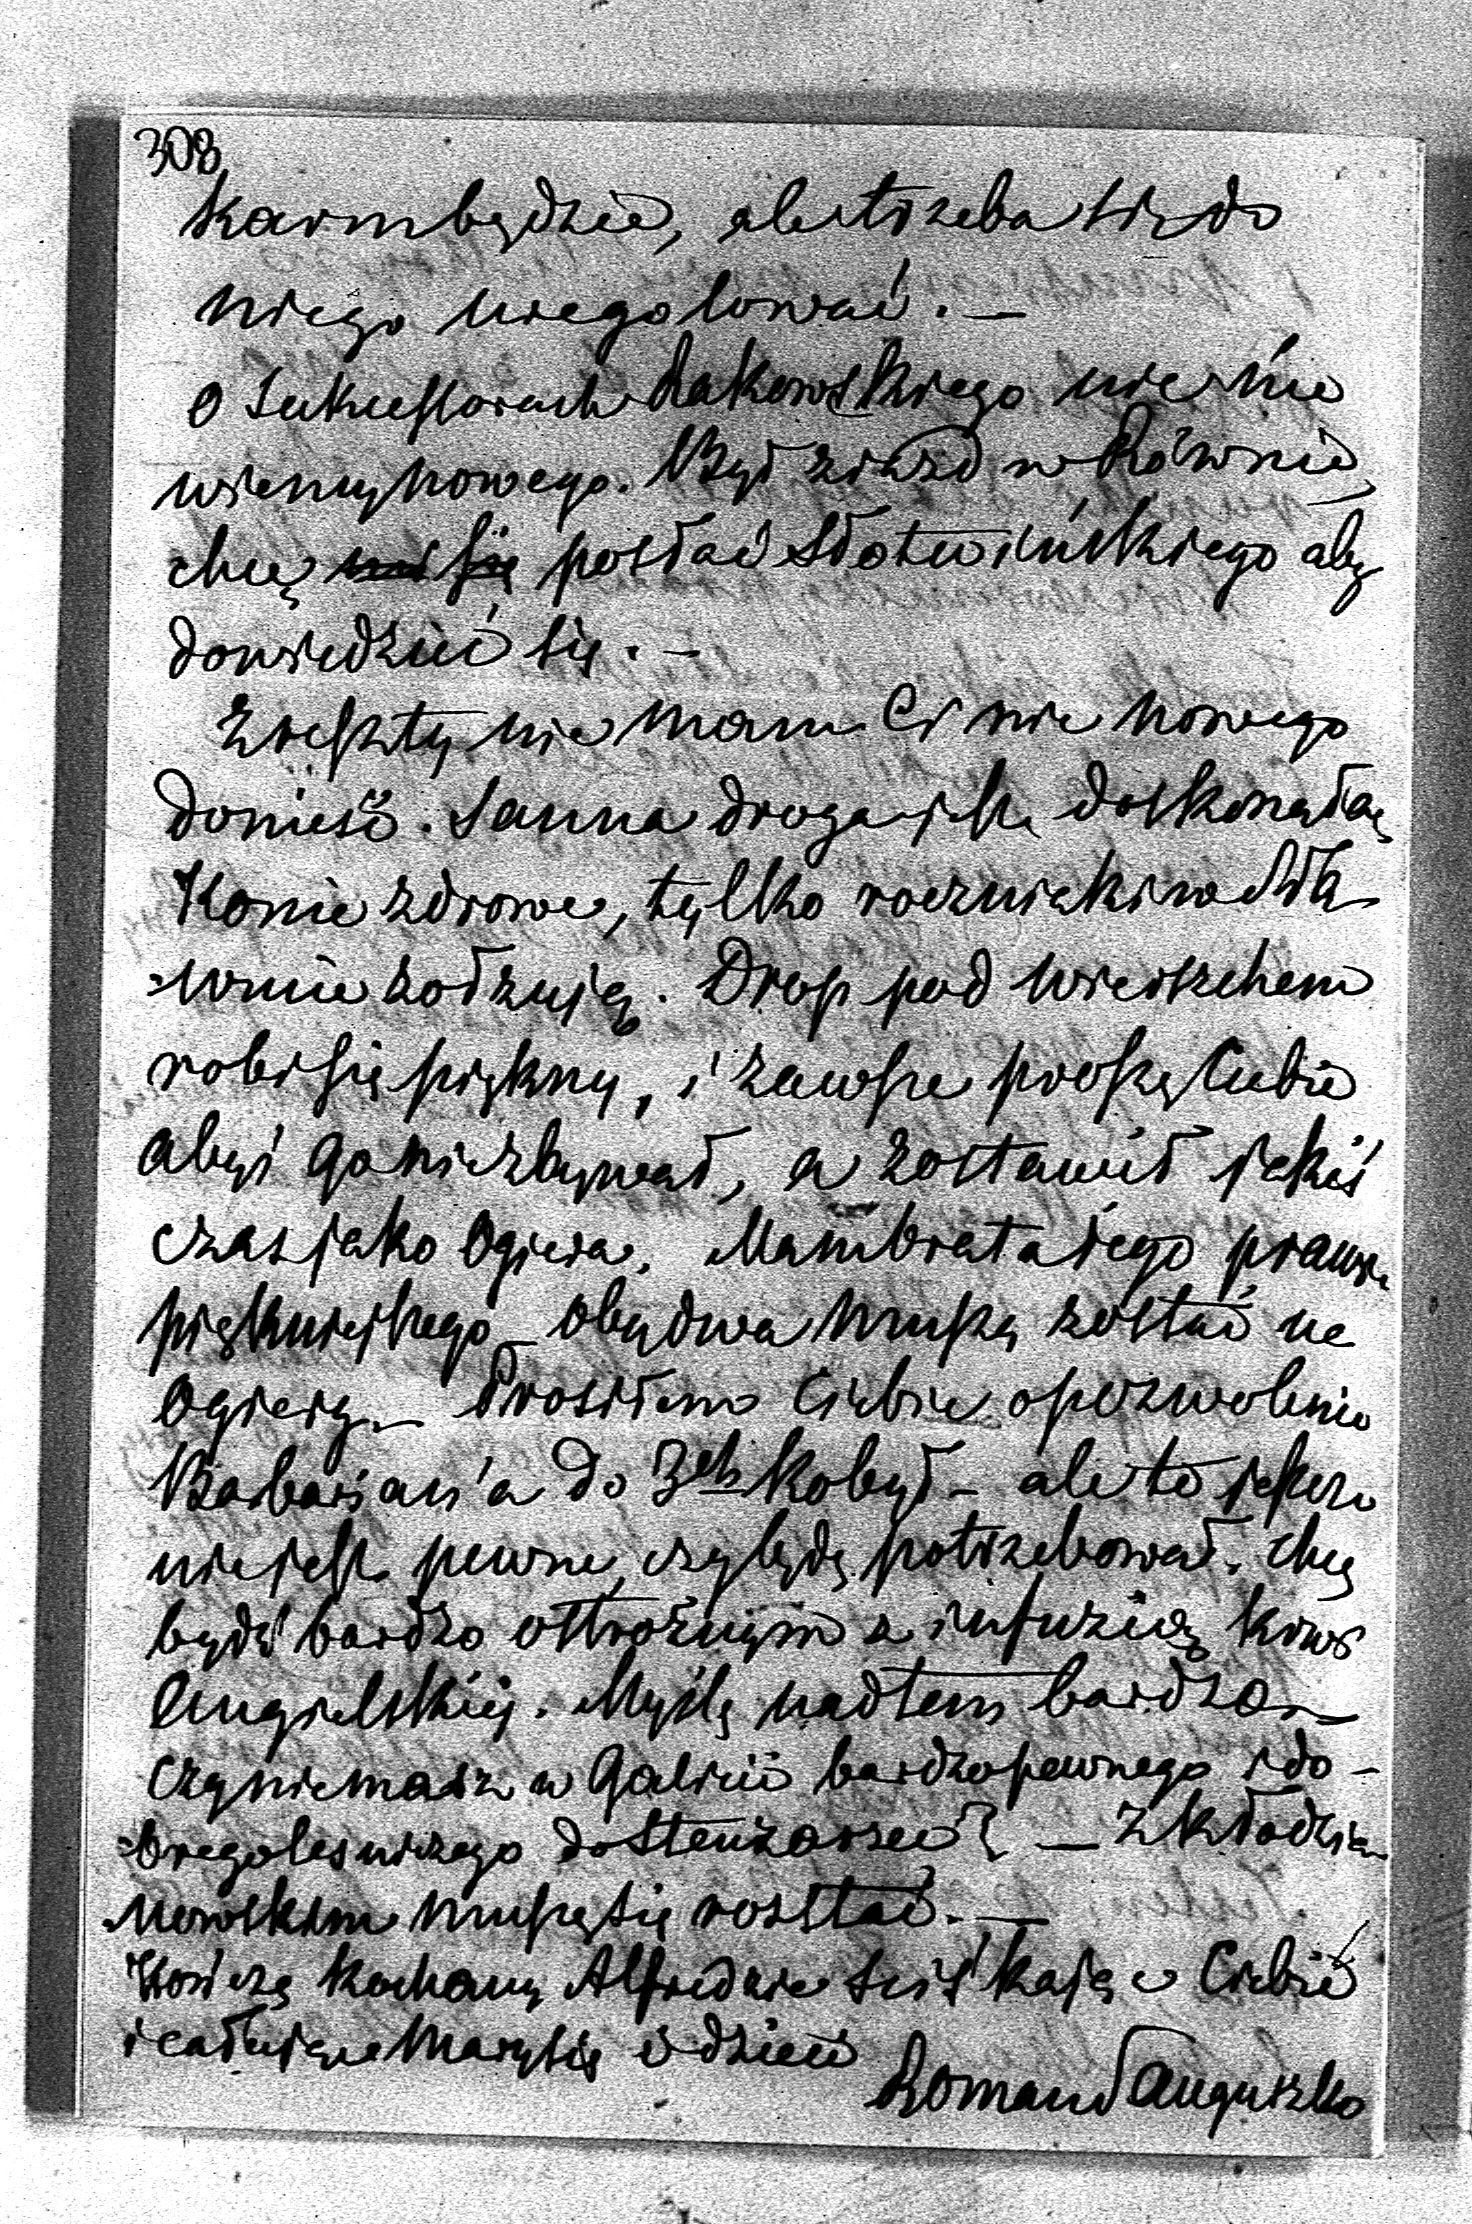 308
karm będzie, ale trzeba się do
niego uregolować. —
O Sukcessorach Rakowskiego nic nie
wiemy nowego. Był zjazd w Równie,
chcę się posłać Słotwińskiego aby
dowiedzieć się. —
Zresztą nic mam Ci nic nowego
donieść. Sanna droga jest doskonała,
Konie zdrowe, tylko roczniaki w Sła-
wucie zołzują. Drop pod wierzchem
robi się piękny, i zawsze proszę Ciebie
abyś go nie zbywał, a zostawił jakiś
czas jako Ogiera. Mam brata jego prawie
piękniejszego – obydwa muszą zostać na
Ogiery – Prosiłem Ciebie o pozwolenie
do 3ch kobył – ale to jeszcze
nie jest pewne, czy będę potrzebował. Chcę
być bardzo ostrożnym z infuzią krwi
Angielskiej. Myślę nad tem bardzo —
Czy nie masz w Galicii bardzo pewnego i do-
brego leśniczego do ? — Z Kłodzia-
nowskim muszę się rozstać. —
Kończę kochany Alfredzie ściskając Ciebie
i całując Marysię i dzieci
Roman Sanguszko